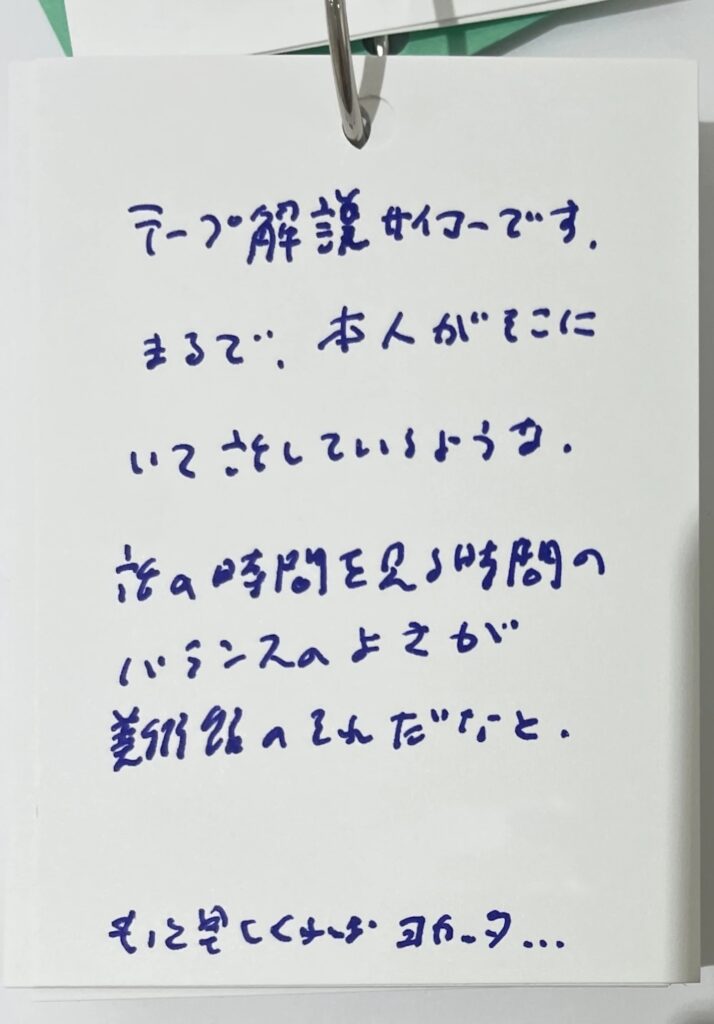 テープ解説サイコーです.
まるで、本人がそこに
いて話しているような.
話の時間を見る時間の
バランスのよさが
美術館のそれだなと.
もっと早くくればヨカッタ...